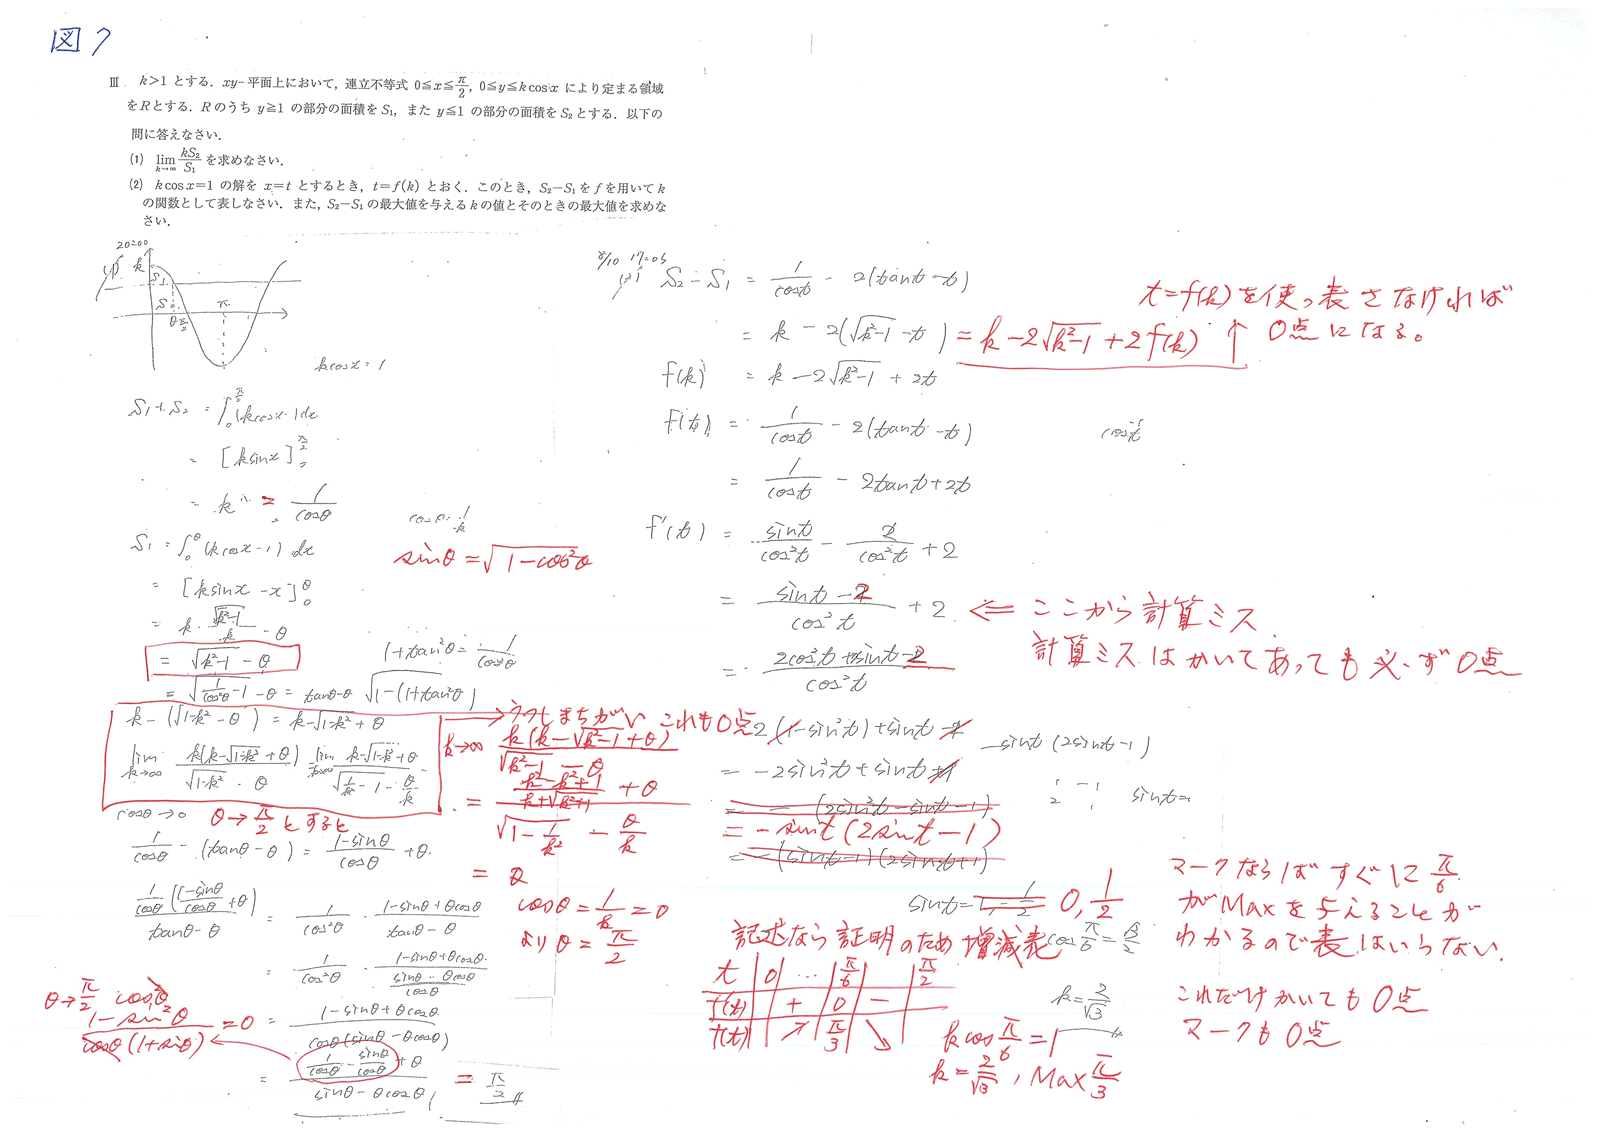 図7
III k>1 とする．xy-平面上において，連立不等式 0≦x≦π/2, 0≦y≦k cos x により定まる領域
をRとする．Rのうち y≧1 の部分の面積を S₁，また y≦1 の部分の面積を S₂とする．以下の
問に答えなさい．
(1) lim k→∞ kS₂/S₁ を求めなさい．
(2) k cos x=1 の解を x=t とするとき，t=f(k) とおく．このとき，S₂−S₁ を f を用いて k
の関数として表しなさい．また，S₂−S₁ の最大値を与える k の値とそのときの最大値を求めな
さい．
20:00
(1)
k
S₁
S₂
θ π/2
π
kcosx=1
S₁+S₂ = ∫₀^{π/2} (kcosx)dx
= [ksinx]₀^{π/2}
= k = 1/cosθ
cosθ=1/k
S₁ = ∫₀^θ (kcosx-1) dx
sinθ=√(1-cos²θ)
= [ksinx-x]₀^θ
= k・√(k²-1)/k - θ
= √(k²-1) - θ
1+tan²θ=1/cos²θ
= √(1/cos²θ -1) -θ = tanθ-θ
√(1-(1+tan²θ))
k-(√(1-k²)-θ) = k-√(1-k²)+θ
lim k→∞ k(k-√(1-k²)+θ)/(√(1-k²)-θ) = lim k→∞ (k-√(1-k²)+θ)/(√(1/k²-1)-θ/k)
→うつしまちがい これも0点
k→∞ k(k-√(k²-1)+θ)/(√(k²-1)-θ)
= ((k²-k²+1)/(k+√(k²-1))+θ)/(√(1-1/k²)-θ/k)
= θ
cosθ=1/k=0
よりθ=π/2
cosθ→0 θ→π/2とすると
1/cosθ-(tanθ-θ) = (1-sinθ)/cosθ+θ
1/cosθ((1-sinθ)/cosθ+θ)/(tanθ-θ) = 1/cos²θ・(1-sinθ+θcosθ)/(tanθ-θ)
= 1/cos²θ・(1-sinθ+θcosθ)/((sinθ-θcosθ)/cosθ)
= (1-sinθ+θcosθ)/(cosθ(sinθ-θcosθ))
θ→π/2 cos²θ
(1-sin²θ)/(cosθ(1+sinθ))=0
= (1/cosθ-sinθ/cosθ+θ)/(sinθ-θcosθ) = π/2
8/10 17:05
(2) S₂-S₁ = 1/cost - 2(tant-t)
= k-2(√(k²-1)-t) = k-2√(k²-1)+2f(k) ↑
t=f(k)を使って表さなければ
0点になる。
f(k) = k-2√(k²-1)+2t
f(t) = 1/cost - 2(tant-t)
cost
= 1/cost - 2tant+2t
f'(t) = sint/cos²t - 2/cos²t + 2
= (sint-2)/cos²t + 2
⇐ ここから計算ミス
計算ミスはかいてあっても必ず0点
= (2cos²t+sint-2)/cos²t
2(1-sin²t)+sint-2
-sint(2sint-1)
= -2sin²t+sint
sint=
= -(2sin²t-sint-1)
= -sint(2sint-1)
= -(sint-1)(2sint+1)
sint=1,-1/2 0,1/2
記述なら証明のため増減表
cosπ/6=√3/2
t 0 … π/6 π/2
f'(t) + 0 -
f(t) ↗ π/3 ↘
k=2/√3
kcosπ/6=1
k=2/√3, Maxπ/3
マークならばすぐにπ/6
がMaxを与えることが
わかるので表はいらない.
これだけかいても0点
マークも0点